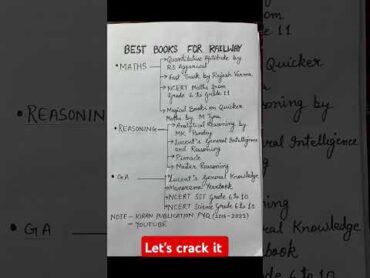 BEST BOOKS FOR RAILWAY
• MATHS
→ Quantitative Aptitude by
RS Aggarwal
→ Fast Track by Rajesh Verma
→ NCERT Maths from
Grade 6 to Grade 11
→ Magical Books on Quicker
Maths by M Tyra
• REASONING
→ Analytical Reasoning by
MK Panday
→ Lucent's General Intelligence
and Reasoning
→ Pinnacle
→ Master Reasoning
• GA
→ Lucent's General Knowledge
→ Manorama Yearbook
→ NCERT SST Grade 6 to 10
→ NCERT Science Grade 6 to 10
NOTE - KIRAN PUBLICATION PYQ (2018-2022)
- YOUTUBE
Let's crack it
• REASONING
• GA
from
11
Quicker
ning by
eral Intelligence
ing
ral Knowledge
book